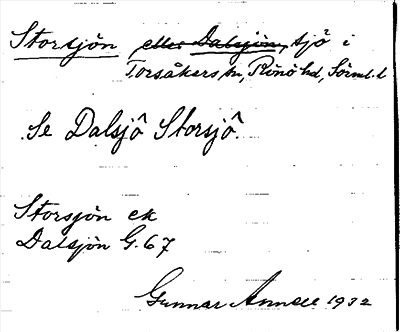 Storsjön eller Dalsjön, sjö i
Torsåkers sn, Rönö hd, Sörml. l
Se Dalsjö Storsjö.
Storsjön ek
Dalsjön G. 67
Gunnar Annell 1932